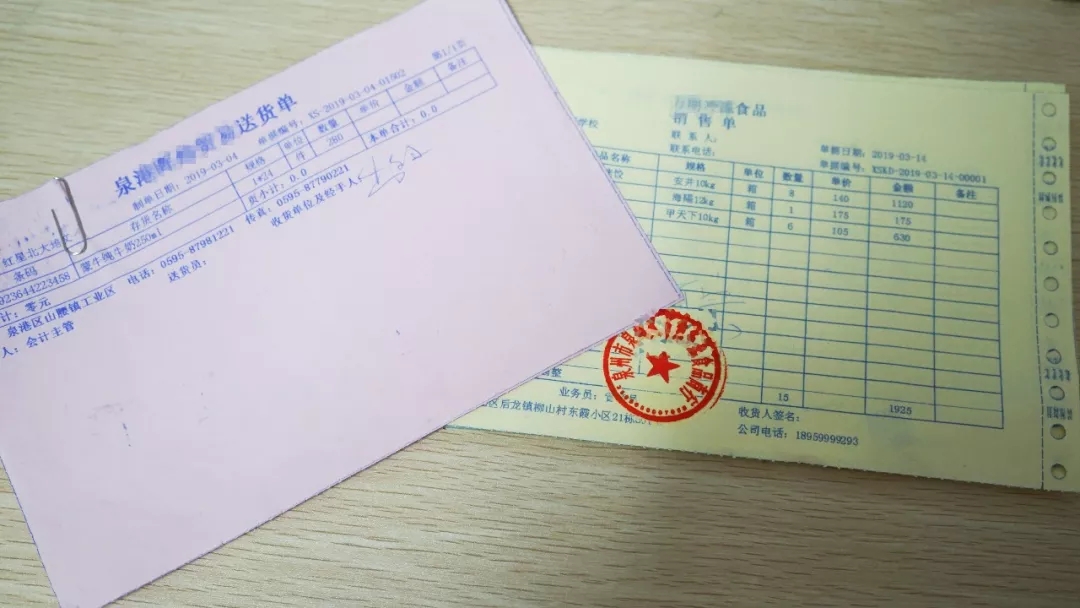 第1/1页
泉港 送货单
制单日期: 2019-03-04 单据编号: XS-2019-03-04-01502
红星北大
条码 存货名称 规格 单位 数量 单价 金额 备注
923644223458 蒙牛纯牛奶250ml 1*24 件 280
计: 零元 页小计: 0.0 本单合计: 0.0
泉港区山腰镇工业区 电话: 0595-87981221 传真: 0595-87790221
人: 会计主管 送货员: 收货单位及经手人
食品
销售单
学校 联系人:
联系电话: 单据日期: 2019-03-14
单据编号: XSKD-2019-03-14-00001
品名称 规格 单位 数量 单价 金额 备注
安井10kg 箱 8 140 1120
海陽12kg 箱 1 175 175
甲天下10kg 6 105 630
泉州市泉 食品商行
整 15 1925
业务员: 收货人签名:
区后龙镇柳山村东霞小区21栋 公司电话: 18959999293